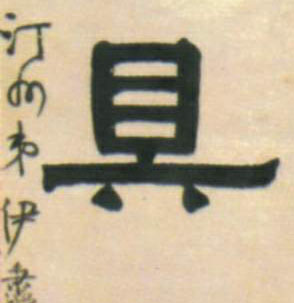 具
汀州弟伊秉